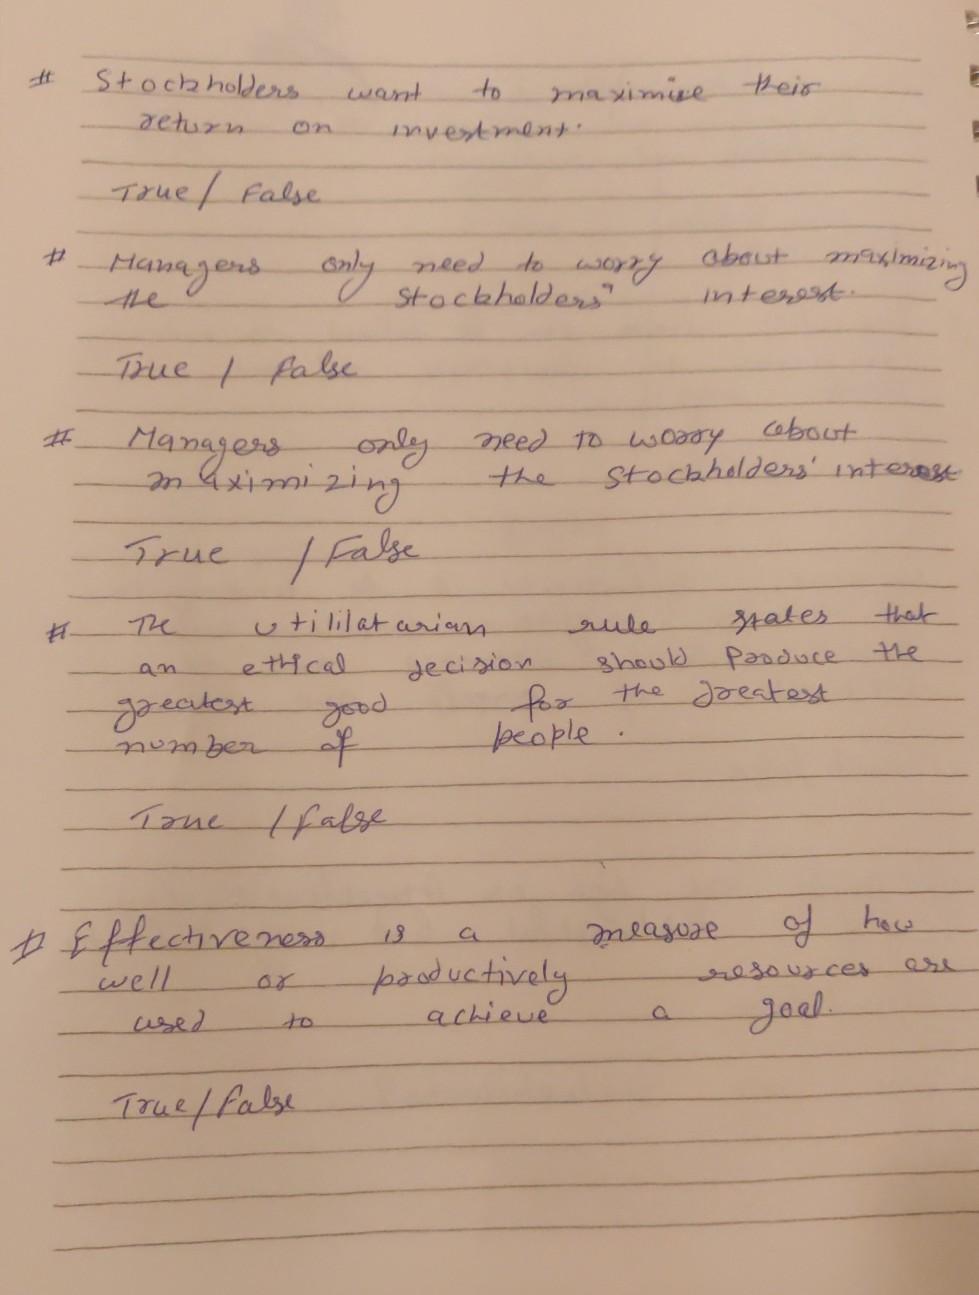 # Stockholders want to maximise their
return on investment.
True / False
# Managers only need to worry about maximizing
the stockholders" interest.
True / false
# Managers only need to worry about
maximizing the stockholders' interest
True / False
# The utililatarian rule states that
an ethical decision should produce the
greatest good for the greatest
number of people.
True / false
# Effectiveness is a measure of how
well or productively resources are
used to achieve a goal.
True / false